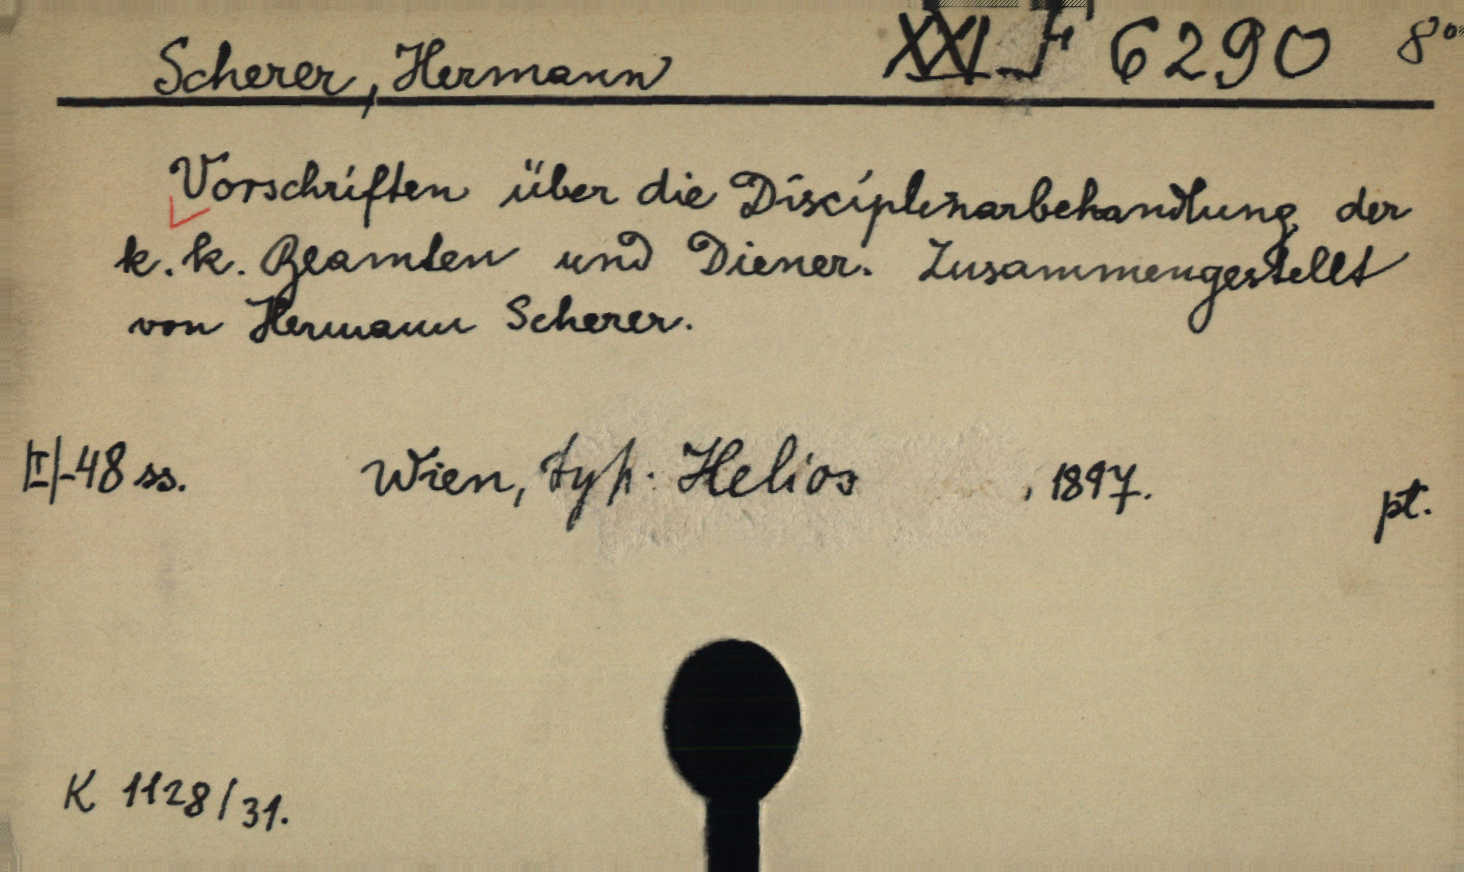 Scherer, Hermann XXI F 6290 8°
Vorschriften über die Disciplinarbehandlung der
k. k. Beamten und Diener. Zusammengestellt
von Hermann Scherer.
II-48 ss. Wien, typ. Helios, 1897. pt.
K 1128/31.